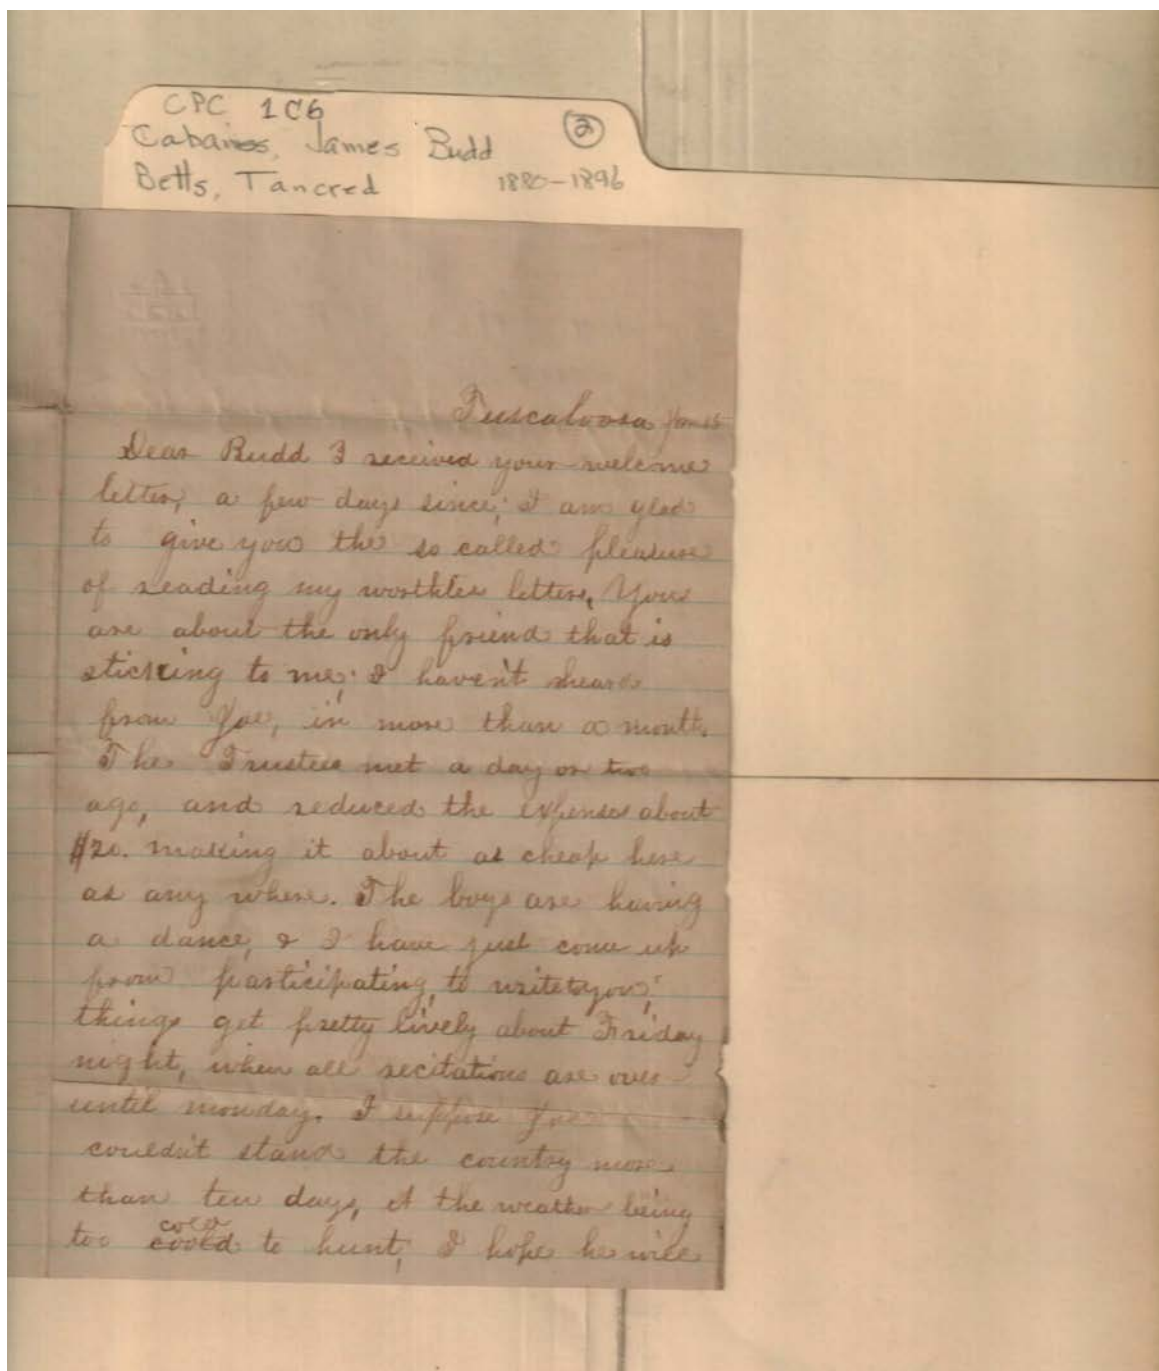 CPC 1C6
Cabaniss, James Budd
②
Betts, Tancred 1880-1896
Tuscaloosa Jan 15
Dear Budd I received your welcome
letter, a few days since; I am glad
to give you the so called pleasure
of reading my worthles letters, You
are about the only friend that is
sticking to me; I haven't heard
from Joe, in more than a month.
The Trustees met a day or two
ago, and reduced the expenses about
$20. making it about as cheap here
as any where. The boys are having
a dance, & I have just come up
from participating, to write to you;
things get pretty lively about Friday
night, when all recitations are over
until monday. I suppose Joe
couldn't stand the country more
than ten days, the weather being
too cold to hunt, I hope he will